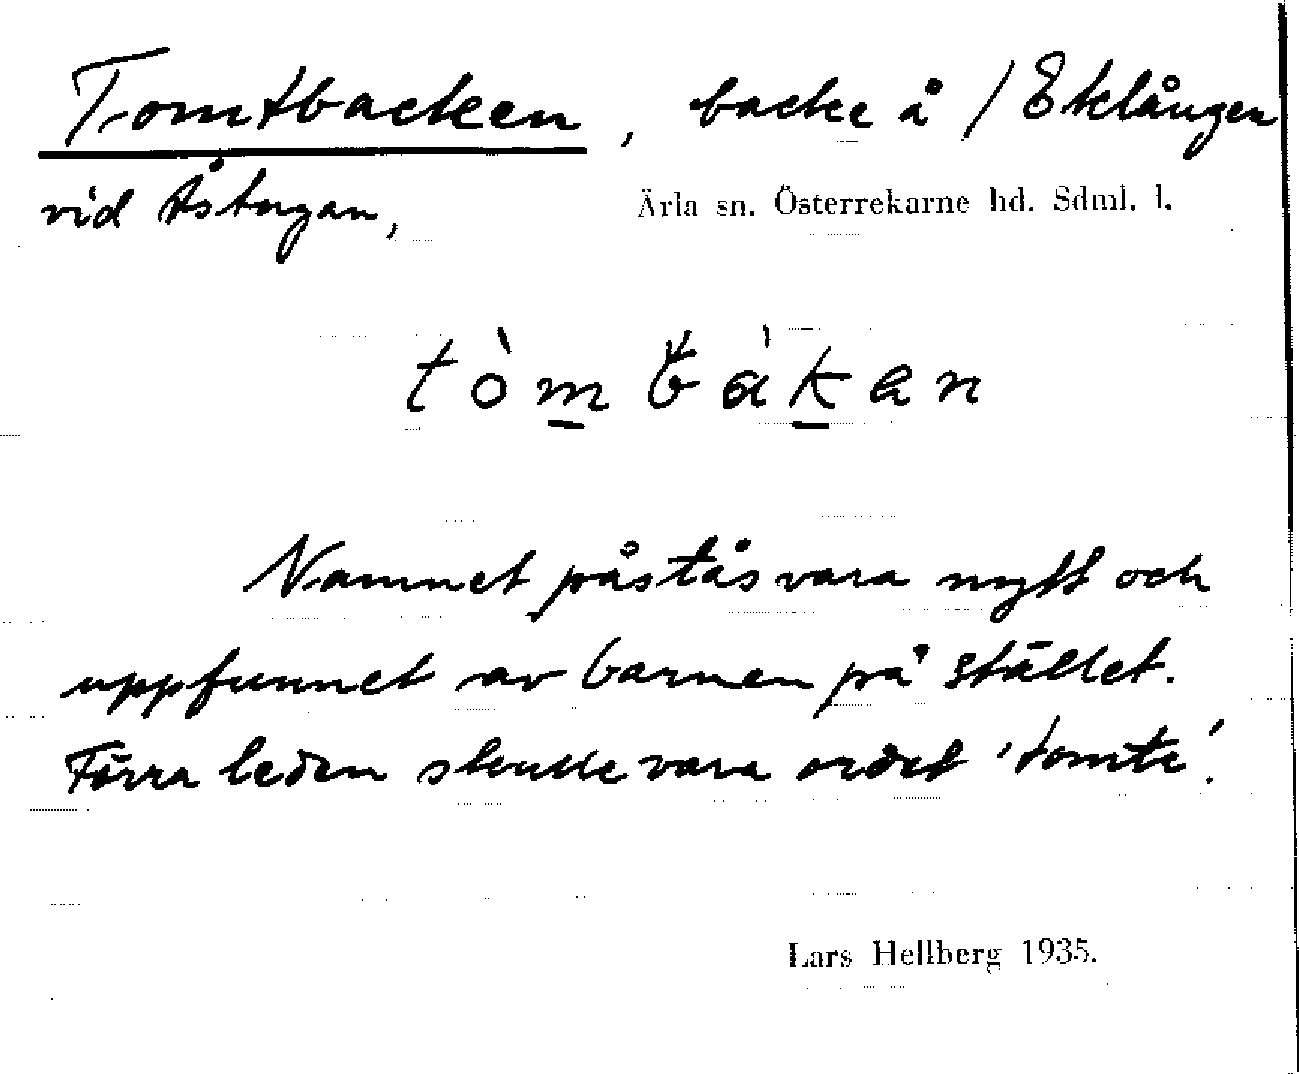 Tomtbacken, backe å / Eklången
vid Åstugan,
Ärla sn. Österrekarne hd. Sdml. l.
tòmbákan
Namnet påstås vara nytt och
uppfunnet av barnen på stället.
Förra leden skulle vara ordet 'tomte'.
Lars Hellberg 1935.